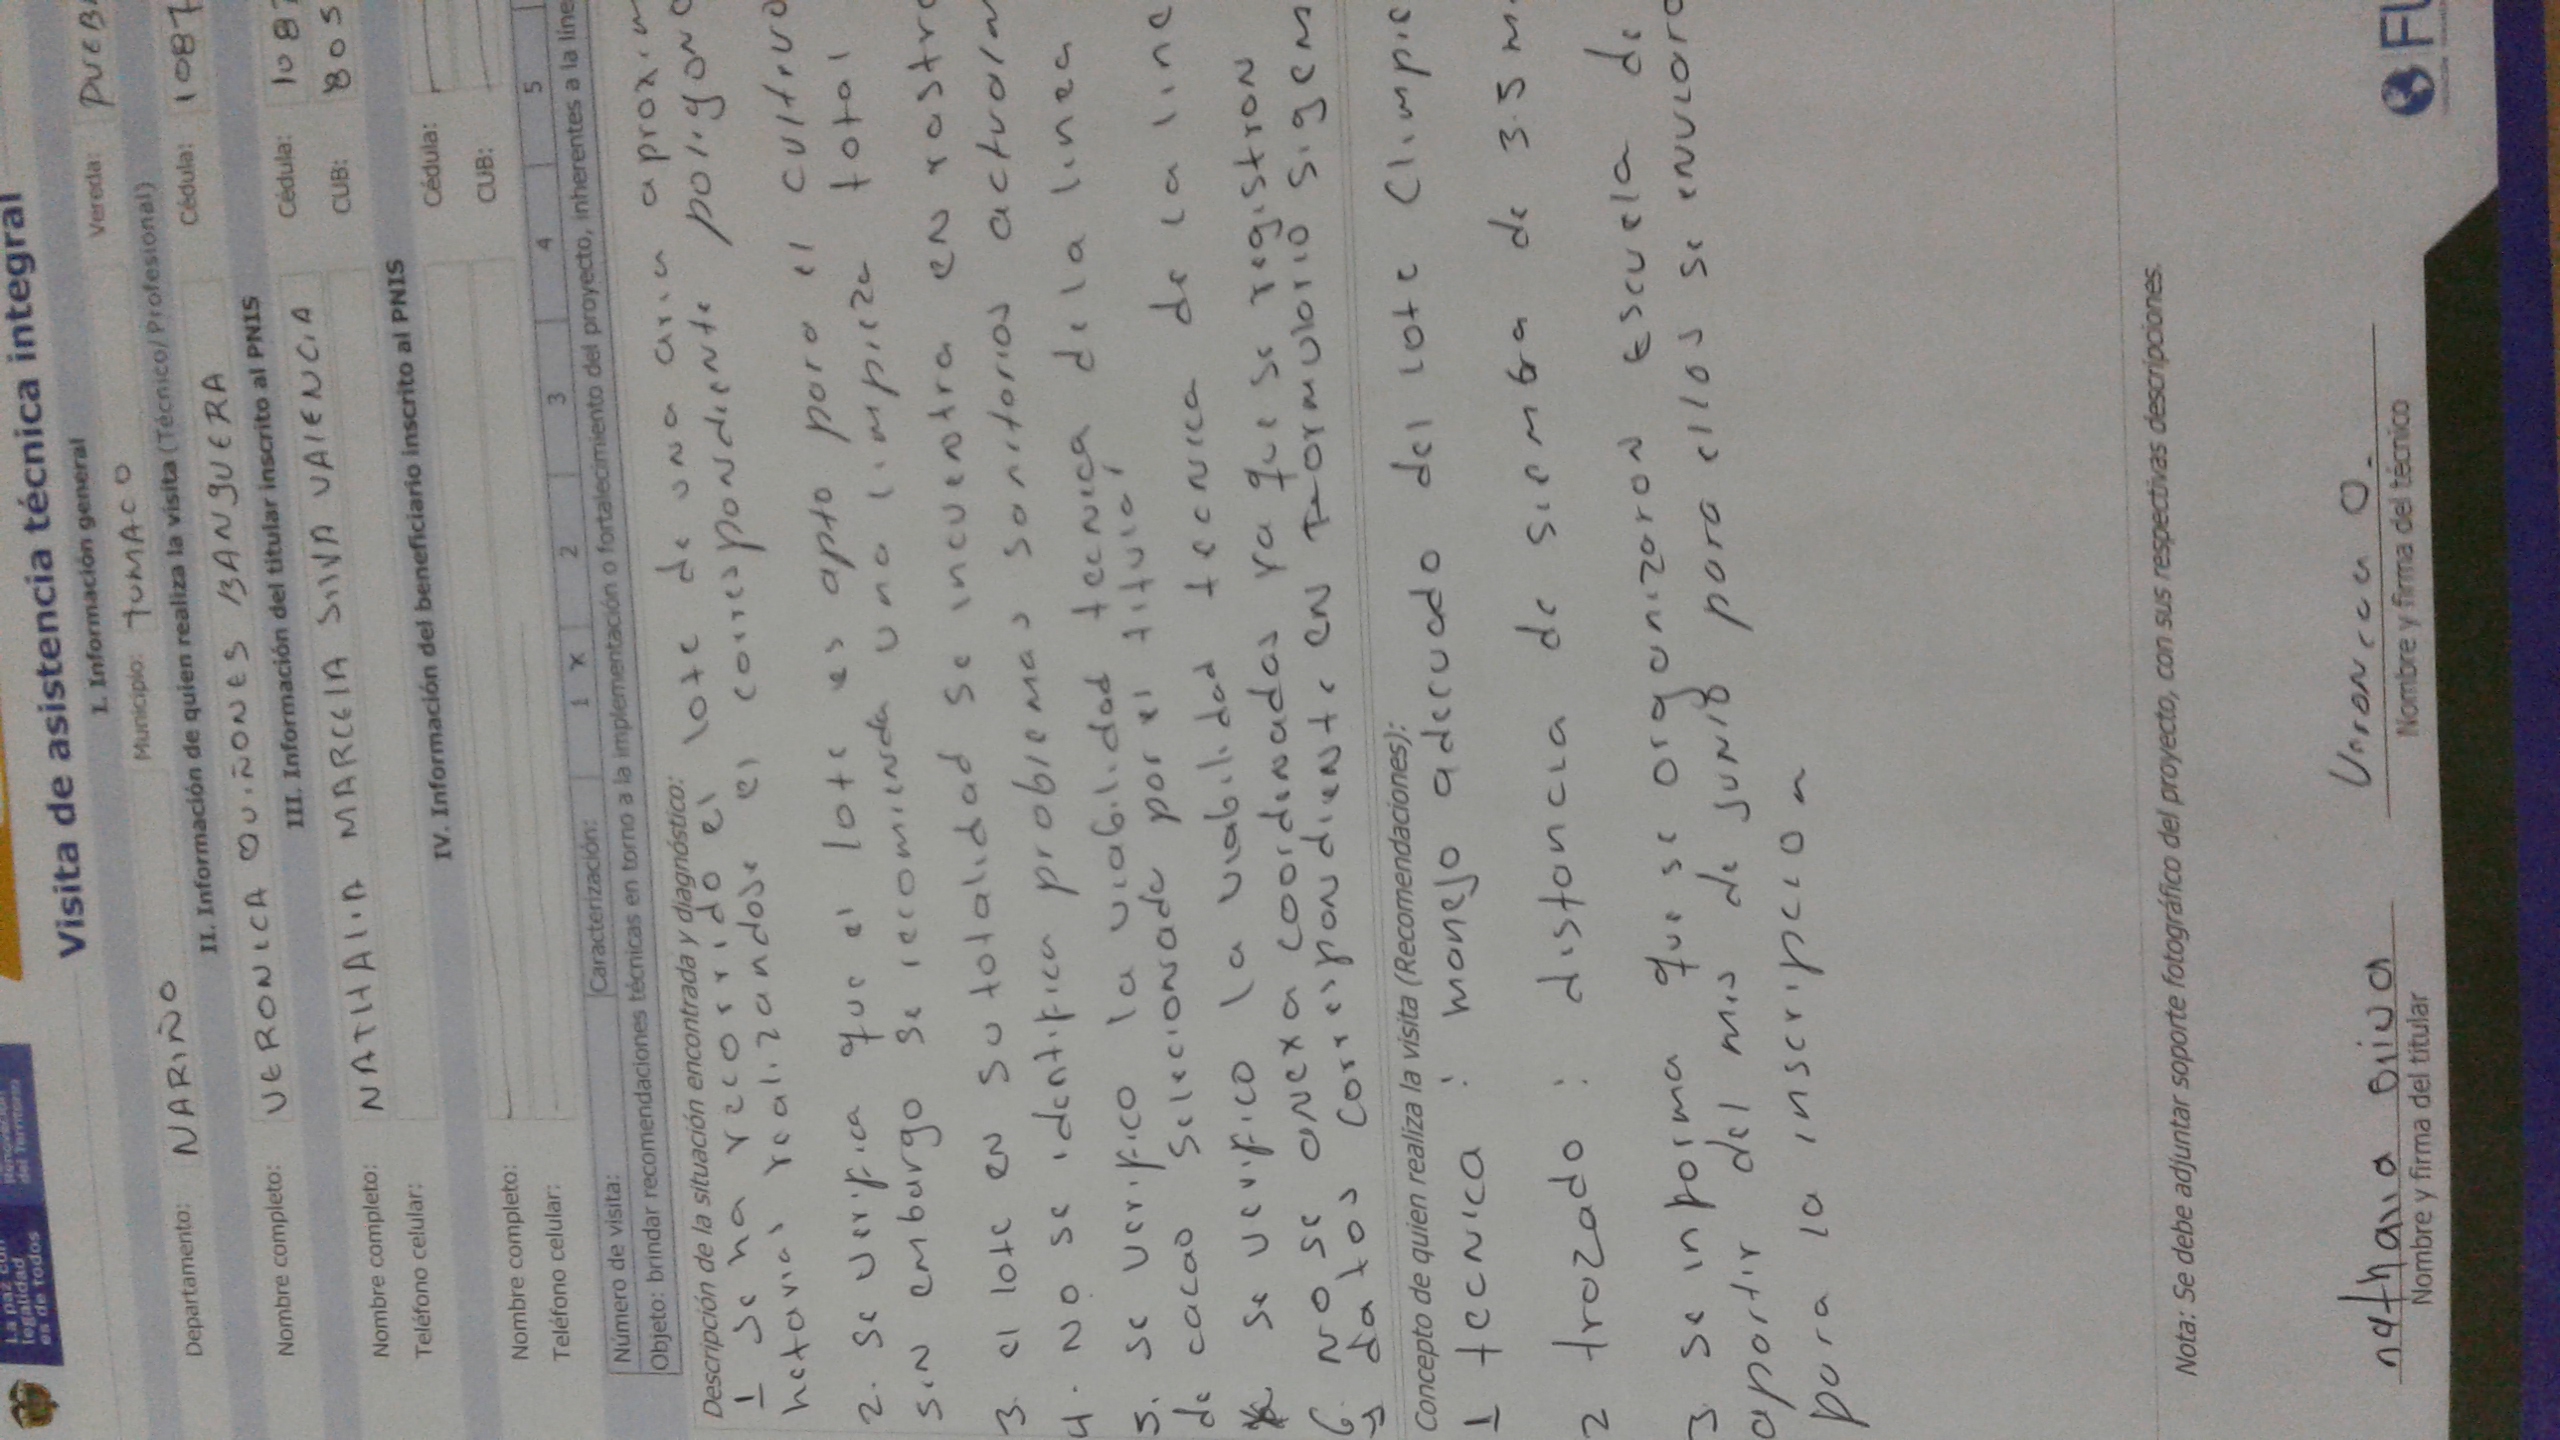 La paz con
legalidad
es de todos
Renovación
del Territorio
Visita de asistencia técnica integral
I. Información general
Departamento: NARIÑO Municipio: TUMACO Vereda: PUEB
II. Información de quien realiza la visita (Técnico/Profesional)
Nombre completo: VERONICA QUIÑONES BANGUERA Cédula: 1087
III. Información del titular inscrito al PNIS
Nombre completo: NATHALIA MARCELA SILVA VALENCIA Cédula: 1087
Teléfono celular: CUB: 805
IV. Información del beneficiario inscrito al PNIS
Nombre completo: Cédula:
Teléfono celular: CUB:
Número de visita: Caracterización: 1 X 2 3 4 5
Objeto: brindar recomendaciones técnicas en torno a la implementación o fortalecimiento del proyecto, inherentes a la líne
Descripción de la situación encontrada y diagnóstico:
1 se ha recorrido el lote de una aria aproxim
hetarias realizandose el correspondiente poligono
2. se verifica que el lote es apto para el cultivo
sin embargo se recomienda una limpieza total
3. el lote en su totalidad se incuentra en rastro
4. no se identifica problemas sanitarios actualm
5. se verifico la viabilidad tecnica de la linea
de cacao selecionada por el titular
se verifico la viabilidad tecnica de la line
6. no se anexa coordenadas ya que se registran
datos correspondiente en formulario sigem
Concepto de quien realiza la visita (Recomendaciones):
1 tecnica : manejo adecuado del lote (limpie
2 trazado : distancia de siembra de 3.5 m
3 se informa que se organizaron escuela de
apartir del mes de junio para ellos se envolar
para la inscripcion
Nota: Se debe adjuntar soporte fotográfico del proyecto, con sus respectivas descripciones.
nathalia Silva Veronica Q.
Nombre y firma del titular Nombre y firma del técnico
FU